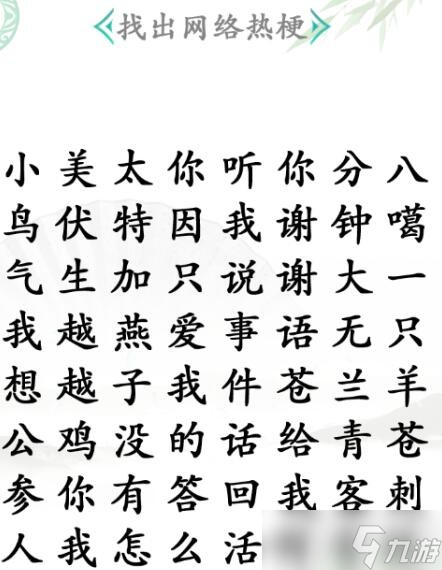 找出网络热梗
小美太你听你分八
鸟伏特因我谢钟噶
气生加只说谢大一
我越燕爱事语无只
想越子我件苍兰羊
公鸡没的话给青苍
参你有答回我客刺
人我怎么活
九游